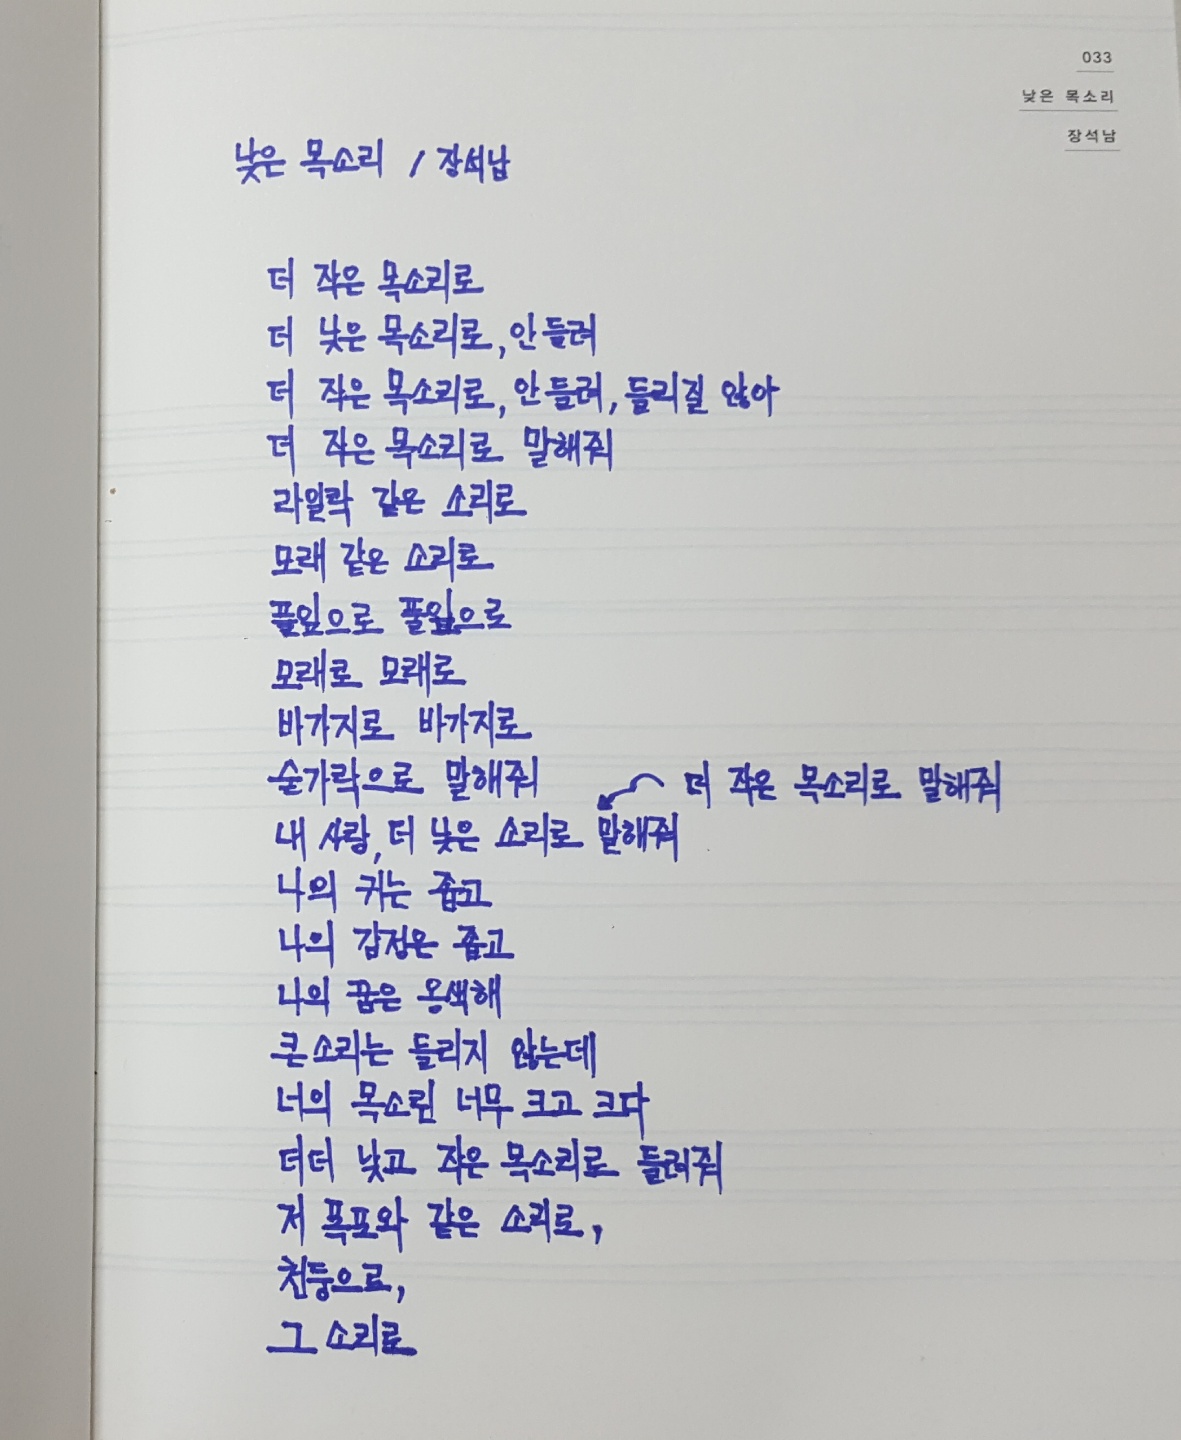 033
낮은 목소리
장석남
낮은 목소리 / 장석남
더 작은 목소리로
더 낮은 목소리로, 안 들려
더 작은 목소리로, 안 들려, 들리질 않아
더 작은 목소리로 말해줘
라일락 같은 소리로
모래 같은 소리로
풀잎으로 풀잎으로
모래로 모래로
바가지로 바가지로
숟가락으로 말해줘
더 작은 목소리로 말해줘
내 사랑, 더 낮은 소리로 말해줘
나의 귀는 좁고
나의 감정은 좁고
나의 꿈은 옹색해
큰 소리는 들리지 않는데
너의 목소린 너무 크고 크다
더더 낮고 작은 목소리로 들려줘
저 폭포와 같은 소리로,
천둥으로,
그 소리로